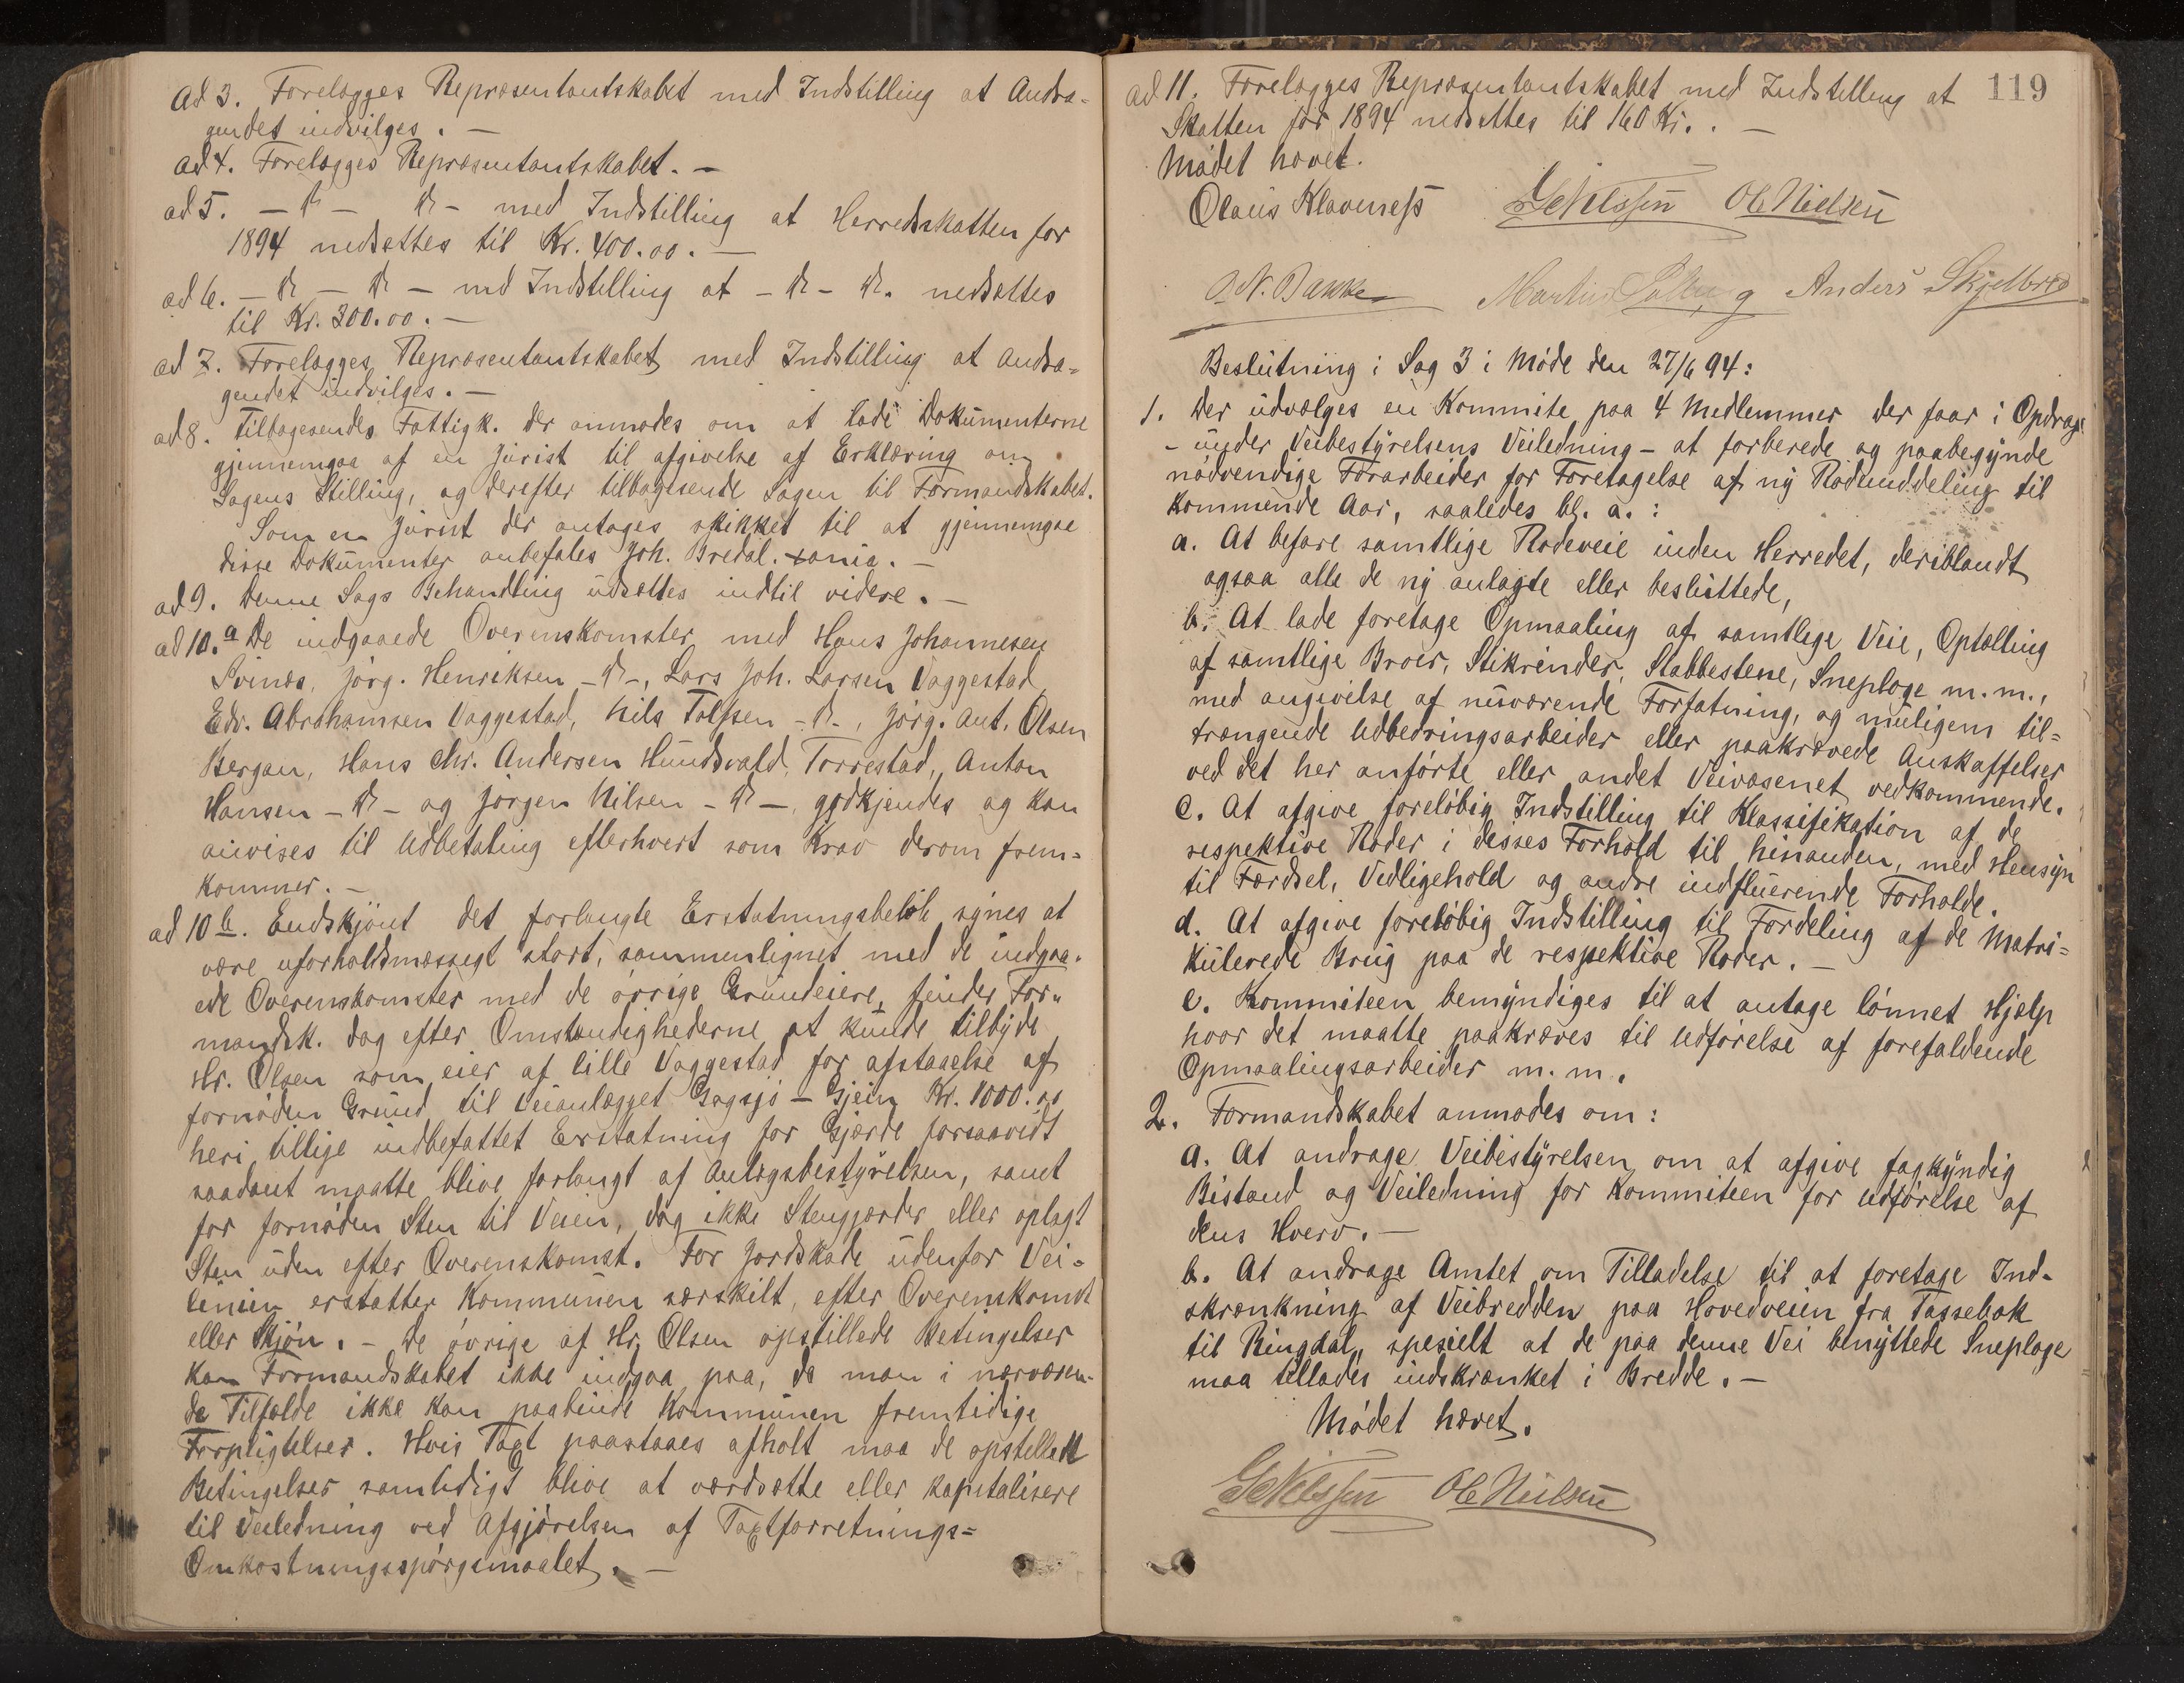 ad 3. Forelægges Repræsentantskabet med Indstilling at Andra-
gendet indvilges. –
ad 4. Forelægges Repræsentantskabet. –
ad 5. – do – do – med Indstilling at Herredsskatten for
1894 nedsættes til Kr. 400.00. –
ad 6. – do – do – med Indstilling at – do – do. nedsættes
til Kr. 300.00. –
ad 7. Forelægges Repræsentantskabet med Indstilling at Andra=
gendet indvilges. –
ad 8. Tilbagesendes Fattigk. der anmodes om at lade Dokumenterne
gjennemgaa af en Jurist til afgivelse af Erklæring om
Sagens Stilling, og derefter tilbagesende Sagen til Formandskabet.
Som en Jurist der antages skikket til at gjennemgaa
disse Dokumenter anbefales Joh. Bredal. Xania. –
ad 9. Denne Sags Behandling udsættes indtil videre. –
ad 10.a De indgaaede Overenskomster med Hans Johannesen
Svinæs, Jørg. Henriksen – do –, Lars Joh. Larsen Vaggestad
Edv. Abrahamsen Vaggestad, Nils Tolfsen – do –, Jørg. Ant. Olsen
Bergan, Hans Chr. Andersen Hundsvald, Torrestad, Anton
Hansen – do – og Jørgen Nilsen – do –, godkjendes og kan
anvises til Udbetaling efterhvert som Krav derom frem=
kommer. –
ad 10 b. Endskjønt det forlangte Erstatningsbeløb synes at
være uforholdsmæssigt stort, sammenlignet med de indgaa-
ede Overenskomster med de øvrige Grundeiere, finder For-
mandsk. dog efter Omstændighederne at kunde tilbyde
Hr. Olsen som eier af lille Vaggestad for afstaaelse af
fornøden Grund til Veianlægget Gogsjø – Gjein Kr. 1000.00
heri tillige indbefattet Erstatning for Gjærde forsaavidt
saadant maatte blive forlangt af Anlægsbestyrelsen, samt
for fornøden Sten til Veien, dog ikke Stengjærder eller oplagt
Sten uden efter Overenskomst. For Jordskade udenfor Vei=
linien erstatter Kommunen særskilt, efter Overenskomst
eller Skjøn. – De øvrige af Hr. Olsen opstillede Betingelser
kan Formandskabet ikke indgaa paa, da man i nærværen-
de Tilfælde ikke kan paabinde Kommunen fremtidige
Forpligtelser. Hvis Taxt paastaaes afholt maa de opstillede
Betingelser samtidigt blive at værdsætte eller kapitalisere
til Veiledning ved Afgjørelsen af Taxtforretnings=
Omkostningsspørgsmaalet. –
119
ad 11. Forelægges Repræsentantskabet med Indstilling at
Skatten for 1894 nedsættes til 160 Kr. . –
Mødet hævet.
Olaus Klaveness GNilssen Ole Nielsen
O. N. Bakke Martin Solberg Anders Skjelbred
Beslutning i Sag 3 i Møde den 27/6 94:
1. Der udvælges en Kommite paa 4 Medlemmer der faar i Opdrag
– under Veibestyrelsens Veiledning – at forberede og paabegynde
nødvendige Forarbeider for Foretagelse af ny Rodeinddeling til
kommende Aar, saaledes bl. a.:
a. At befare samtlige Rodeveie inden Herredet, deriblandt
ogsaa alle de ny anlagte eller besluttede,
b. At lade foretage Opmaaling af samtlige Veie, Optælling
af samtlige Broer, Stikrender, Stabbestene, Sneploge m. m.,
med angivelse af nuværende Forfatning, og muligens til=
trængende Udbedringsarbeider eller paakrævede Anskaffelser
ved det her anførte eller andet Veivæsenet vedkommende.
c. At afgive foreløbig Indstilling til Klassifikation af de
respektive Roder i desses Forhold til hinanden, med Hensyn
til Færdsel, Vedligehold og andre indfluerende Forholde.
d. At afgive foreløbig Indstilling til Fordeling af de Matri=
kulerede Brug paa de respektive Roder. –
e. Kommiteen bemyndiges til at antage lønnet Hjælp
hvor det maatte paakræves til Udførelse af forefaldende
Opmaalingsarbeider m. m.
2. Formandskabet anmodes om:
a. At andrage Veibestyrelsen om at afgive fagkyndig
Bistand og Veiledning for Kommiteen for Udførelse af
dens Hverv. –
b. At andrage Amtet om Tilladelse til at foretage Ind-
skrænkning af Veibredden paa Hovedveien fra Tassebæk
til Ringdal, spesielt at de paa denne Vei benyttede Sneploge
maa tillades indskrænket i Bredde. –
Mødet hævet.
GNilssen Ole Nielsen